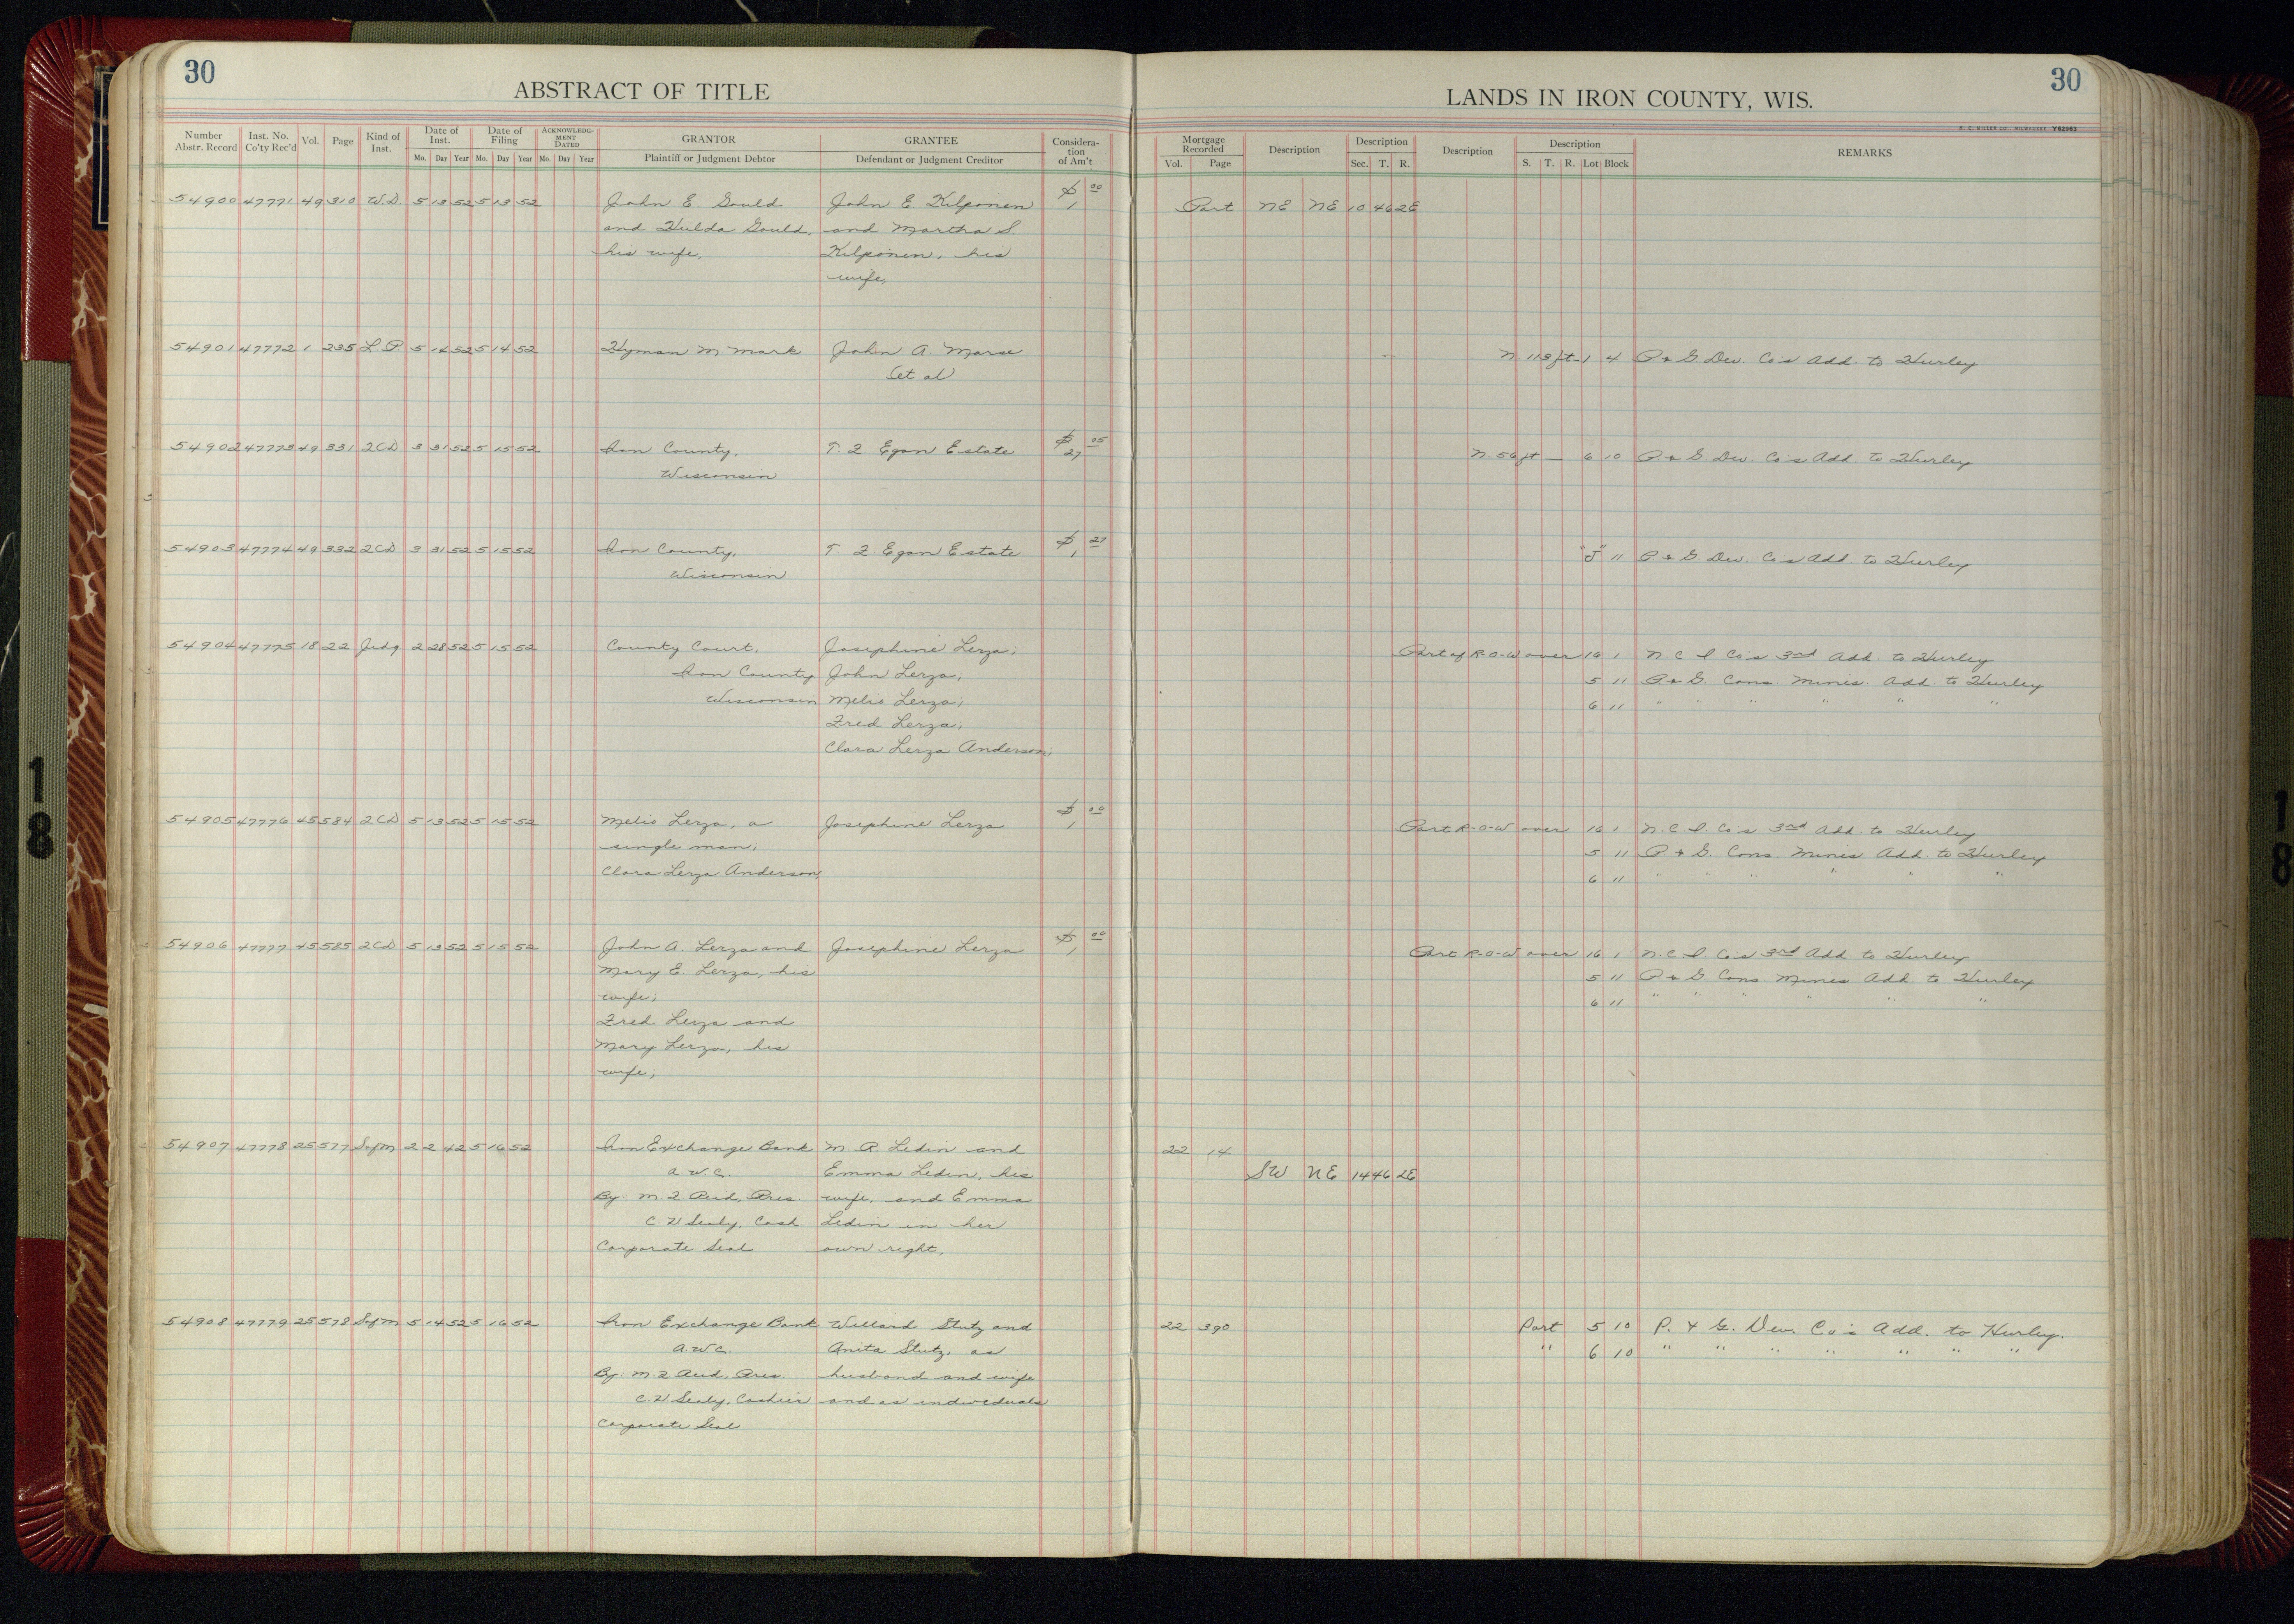 30
ABSTRACT OF TITLE
Number Abstr. Record | Inst. No. Co'ty Rec'd | Vol. | Page | Kind of Inst. | Date of Inst. Mo. Day Year | Date of Filing Mo. Day Year | ACKNOWLEDG-MENT DATED Mo. Day Year | GRANTOR Plaintiff or Judgment Debtor | GRANTEE Defendant or Judgment Creditor | Considera-tion of Am't
LANDS IN IRON COUNTY, WIS.
30
Y62963
Mortgage Recorded Vol. Page | Description | Description Sec. T. R. | Description | Description S. T. R. Lot Block | REMARKS
54900 47771 49 310 W.D. 5 13 52 5 13 52 John E. Gould John E Kilponen $1 00 Part NE NE 10 46 2E
and Hulda Gould, and Martha S.
his wife, Kilponen, his
wife,
54901 47772 1 235 L P 5 14 52 5 14 52 Hyman M Mark John A. Marse N. 113 ft - 1 4 P & G. Dev. Co's Add. to Hurley
et al
54902 47773 49 331 2CD 3 31 52 5 15 52 Iron County, T. F. Egan Estate $27 05 N. 56 ft — 6 10 P & G Dev. Co's Add. to Hurley
Wisconsin
54903 47774 49 332 2CD 3 31 52 5 15 52 Iron County, T. F. Egan Estate $1 27 "J" 11 P. & G Dev. Co's Add. to Hurley
Wisconsin
54904 47775 18 22 Judg. 2 28 52 5 15 52 County Court, Josephine Lerza; Part of R-O-W over 16 1 N. C I Co's 3rd Add. to Hurley
Iron County John Lerza; 5 11 P. & G. Cons. Mines. Add. to Hurley
Wisconsin Melio Lerza; 6 11 " " " " " "
Fred Lerza;
Clara Lerza Anderson;
54905 47776 45 584 2CD 5 13 52 5 15 52 Melio Lerza, a Josephine Lerza $1 00 Part R-O-W over 16 1 N. C. I. Co's 3rd Add. to Hurley
single man; 5 11 P & G. Cons. Mines Add. to Hurley
Clara Lerza Anderson, 6 11 " " " " " "
54906 47777 45 585 2CD 5 13 52 5 15 52 John A. Lerza and Josephine Lerza $1 00 Part R-O-W over 16 1 N. C I Co's 3rd Add. to Hurley
Mary E Lerza, his 5 11 P & G Cons. Mines Add. to Hurley
wife; 6 11 " " " " " "
Fred Lerza and
Mary Lerza, his
wife;
54907 47778 25 577 SofM 2 2 42 5 16 52 Iron Exchange Bank M. R. Ledin and 22 14
A. W C. Emma Ledin, his SW NE 14 46 2E
By: M. F. Reid, Pres. wife, and Emma
C. H Sealy, Cash. Ledin in her
Corporate Seal own right,
54908 47779 25 578 SofM 5 14 52 5 16 52 Iron Exchange Bank Willard Stutz and 22 390 Part 5 10 P. & G. Dev. Co's Add. to Hurley.
A. W C. Anita Stutz, as " 6 10 " " " " " " "
By: M F Reid, Pres. husband and wife
C. H Sealy, Cashier and as individuals
Corporate Seal
18
18